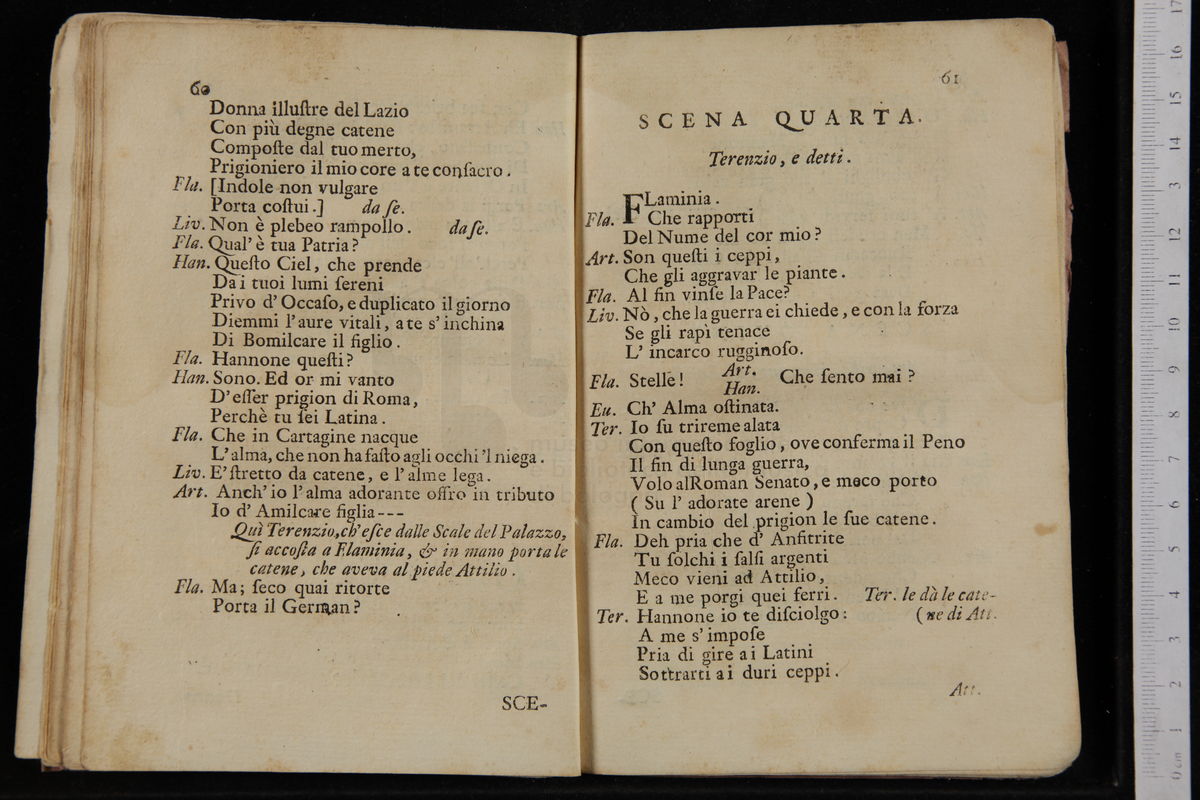 60
Donna illuſtre del Lazio
Con più degne catene
Compoſte dal tuo merto,
Prigioniero il mio core a te conſacro.
Fla. [Indole non vulgare
Porta coſtui.] da ſe.
Liv. Non è plebeo rampollo. da ſe.
Fla. Qual' è tua Patria?
Han. Queſto Ciel, che prende
Da i tuoi lumi ſereni
Privo d' Occaſo, e duplicato il giorno
Diemmi l'aure vitali, a te s' inchina
Di Bomilcare il figlio.
Fla. Hannone queſti?
Han. Sono. Ed or mi vanto
D'eſſer prigion di Roma,
Perchè tu ſei Latina.
Fla. Che in Cartagine nacque
L'alma, che non ha faſto agli occhi 'l niega.
Liv. E' ſtretto da catene, e l'alme lega.
Art. Anch' io l'alma adorante offro in tributo
Io d' Amilcare figlia---
Quì Terenzio, ch' eſce dalle Scale del Palazzo,
ſi accoſta a Flaminia, & in mano porta le
catene, che aveva al piede Attilio.
Fla. Ma; ſeco quai ritorte
Porta il German?
SCE-
61
SCENA QUARTA.
Terenzio, e detti.
FLaminia.
Fla. Che rapporti
Del Nume del cor mio?
Art. Son queſti i ceppi,
Che gli aggravar le piante.
Fla. Al fin vinſe la Pace?
Liv. Nò, che la guerra ei chiede, e con la forza
Se gli rapì tenace
L' incarco rugginoſo.
Fla. Stelle! Art. Han. Che ſento mai?
Eu. Ch' Alma oſtinata.
Ter. Io ſu trireme alata
Con queſto foglio, ove conferma il Peno
Il fin di lunga guerra,
Volo al Roman Senato, e meco porto
( Su l' adorate arene )
In cambio del prigion le ſue catene.
Fla. Deh pria che d' Anfitrite
Tu ſolchi i ſalſi argenti
Meco vieni ad Attilio,
E a me porgi quei ferri. Ter. le dà le cate-
Ter. Hannone io te diſciolgo: (ne di Att.
A me s' impoſe
Pria di gire a i Latini
Sottrarti a i duri ceppi.
Att.
17
16
15
14
13
12
11
10
9
8
7
6
5
4
3
2
1
0 cm